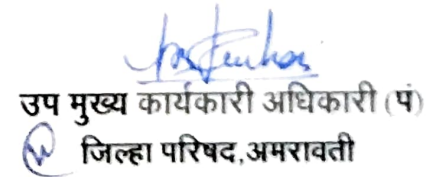 उप मुख्य कार्यकारी अधिकारी (पं)
जिल्हा परिषद,अमरावती